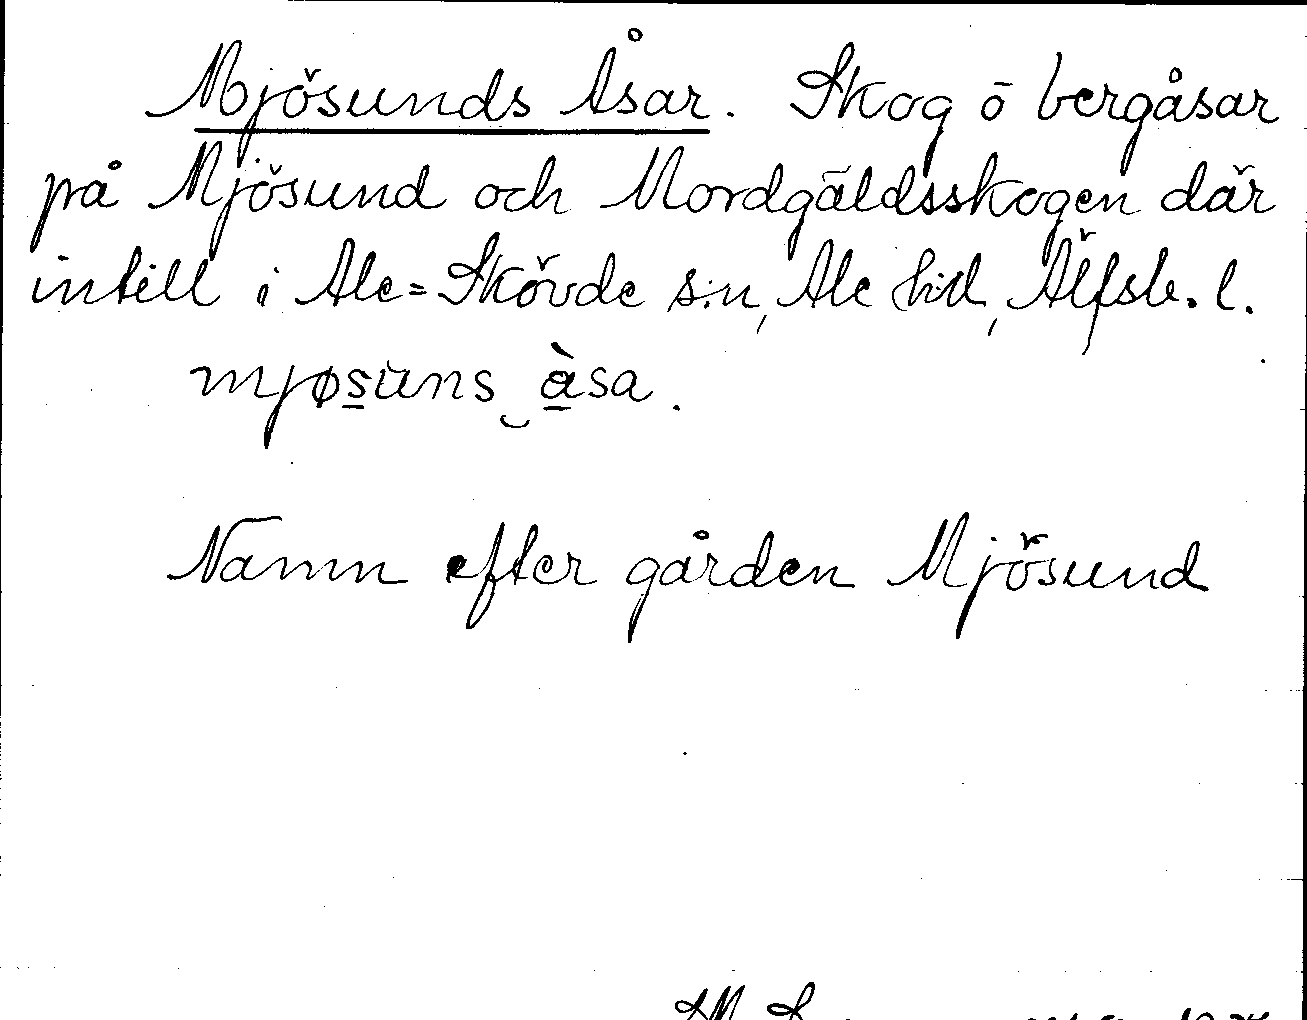 Mjösunds Åsar. Skog ō bergåsar
på Mjösund och Mordgäldsskogen där
intill i Ale=Skövde s:n, Ale h:d, Älfsb. l.
mjøsuns åsa.
Namn efter gården Mjösund